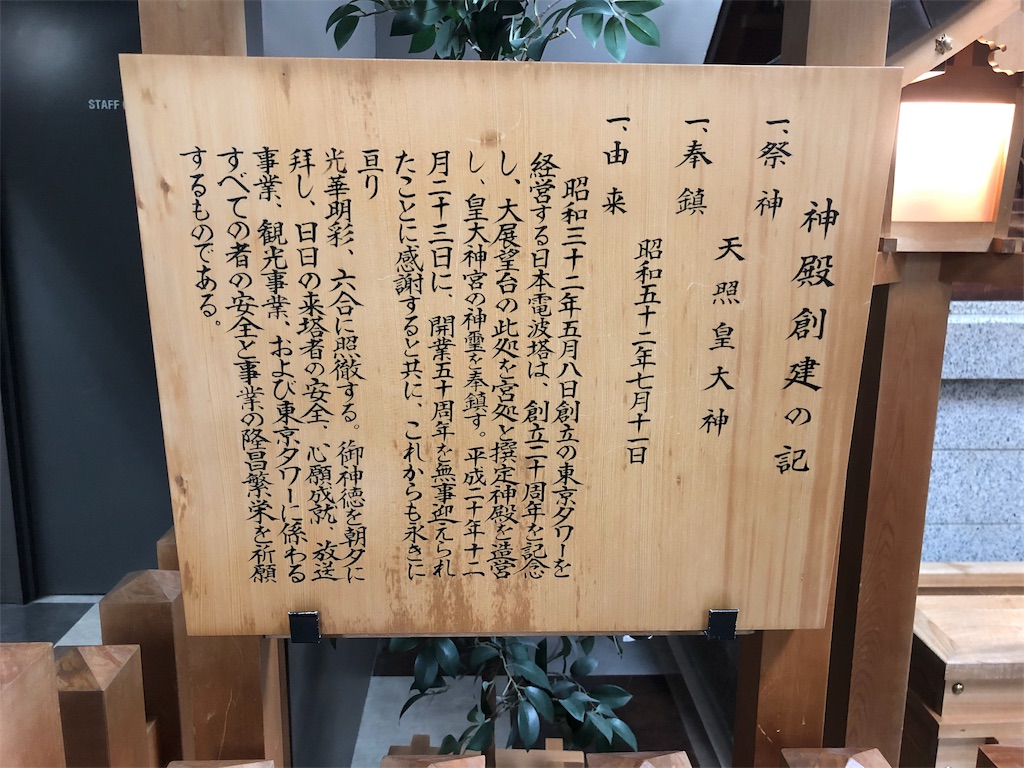 神殿創建の記
一、祭神
天照皇大神
一、奉鎮
昭和五十二年七月十一日
一、由来
昭和三十二年五月八日創立の東京タワーを
経営する日本電波塔は、創立二十周年を記念
し、大展望台の此処を宮処と撰定神殿を造営
し、皇大神宮の神璽を奉鎮す。平成二十年十二
月二十三日に、開業五十周年を無事迎えられ
たことに感謝すると共に、これからも永きに
亘り
光華明彩、六合に照徹する。御神徳を朝夕に
拝し、日日の来塔者の安全、心願成就、放送
事業、観光事業、および東京タワーに係わる
すべての者の安全と事業の隆昌繁栄を祈願
するものである。
STAFF